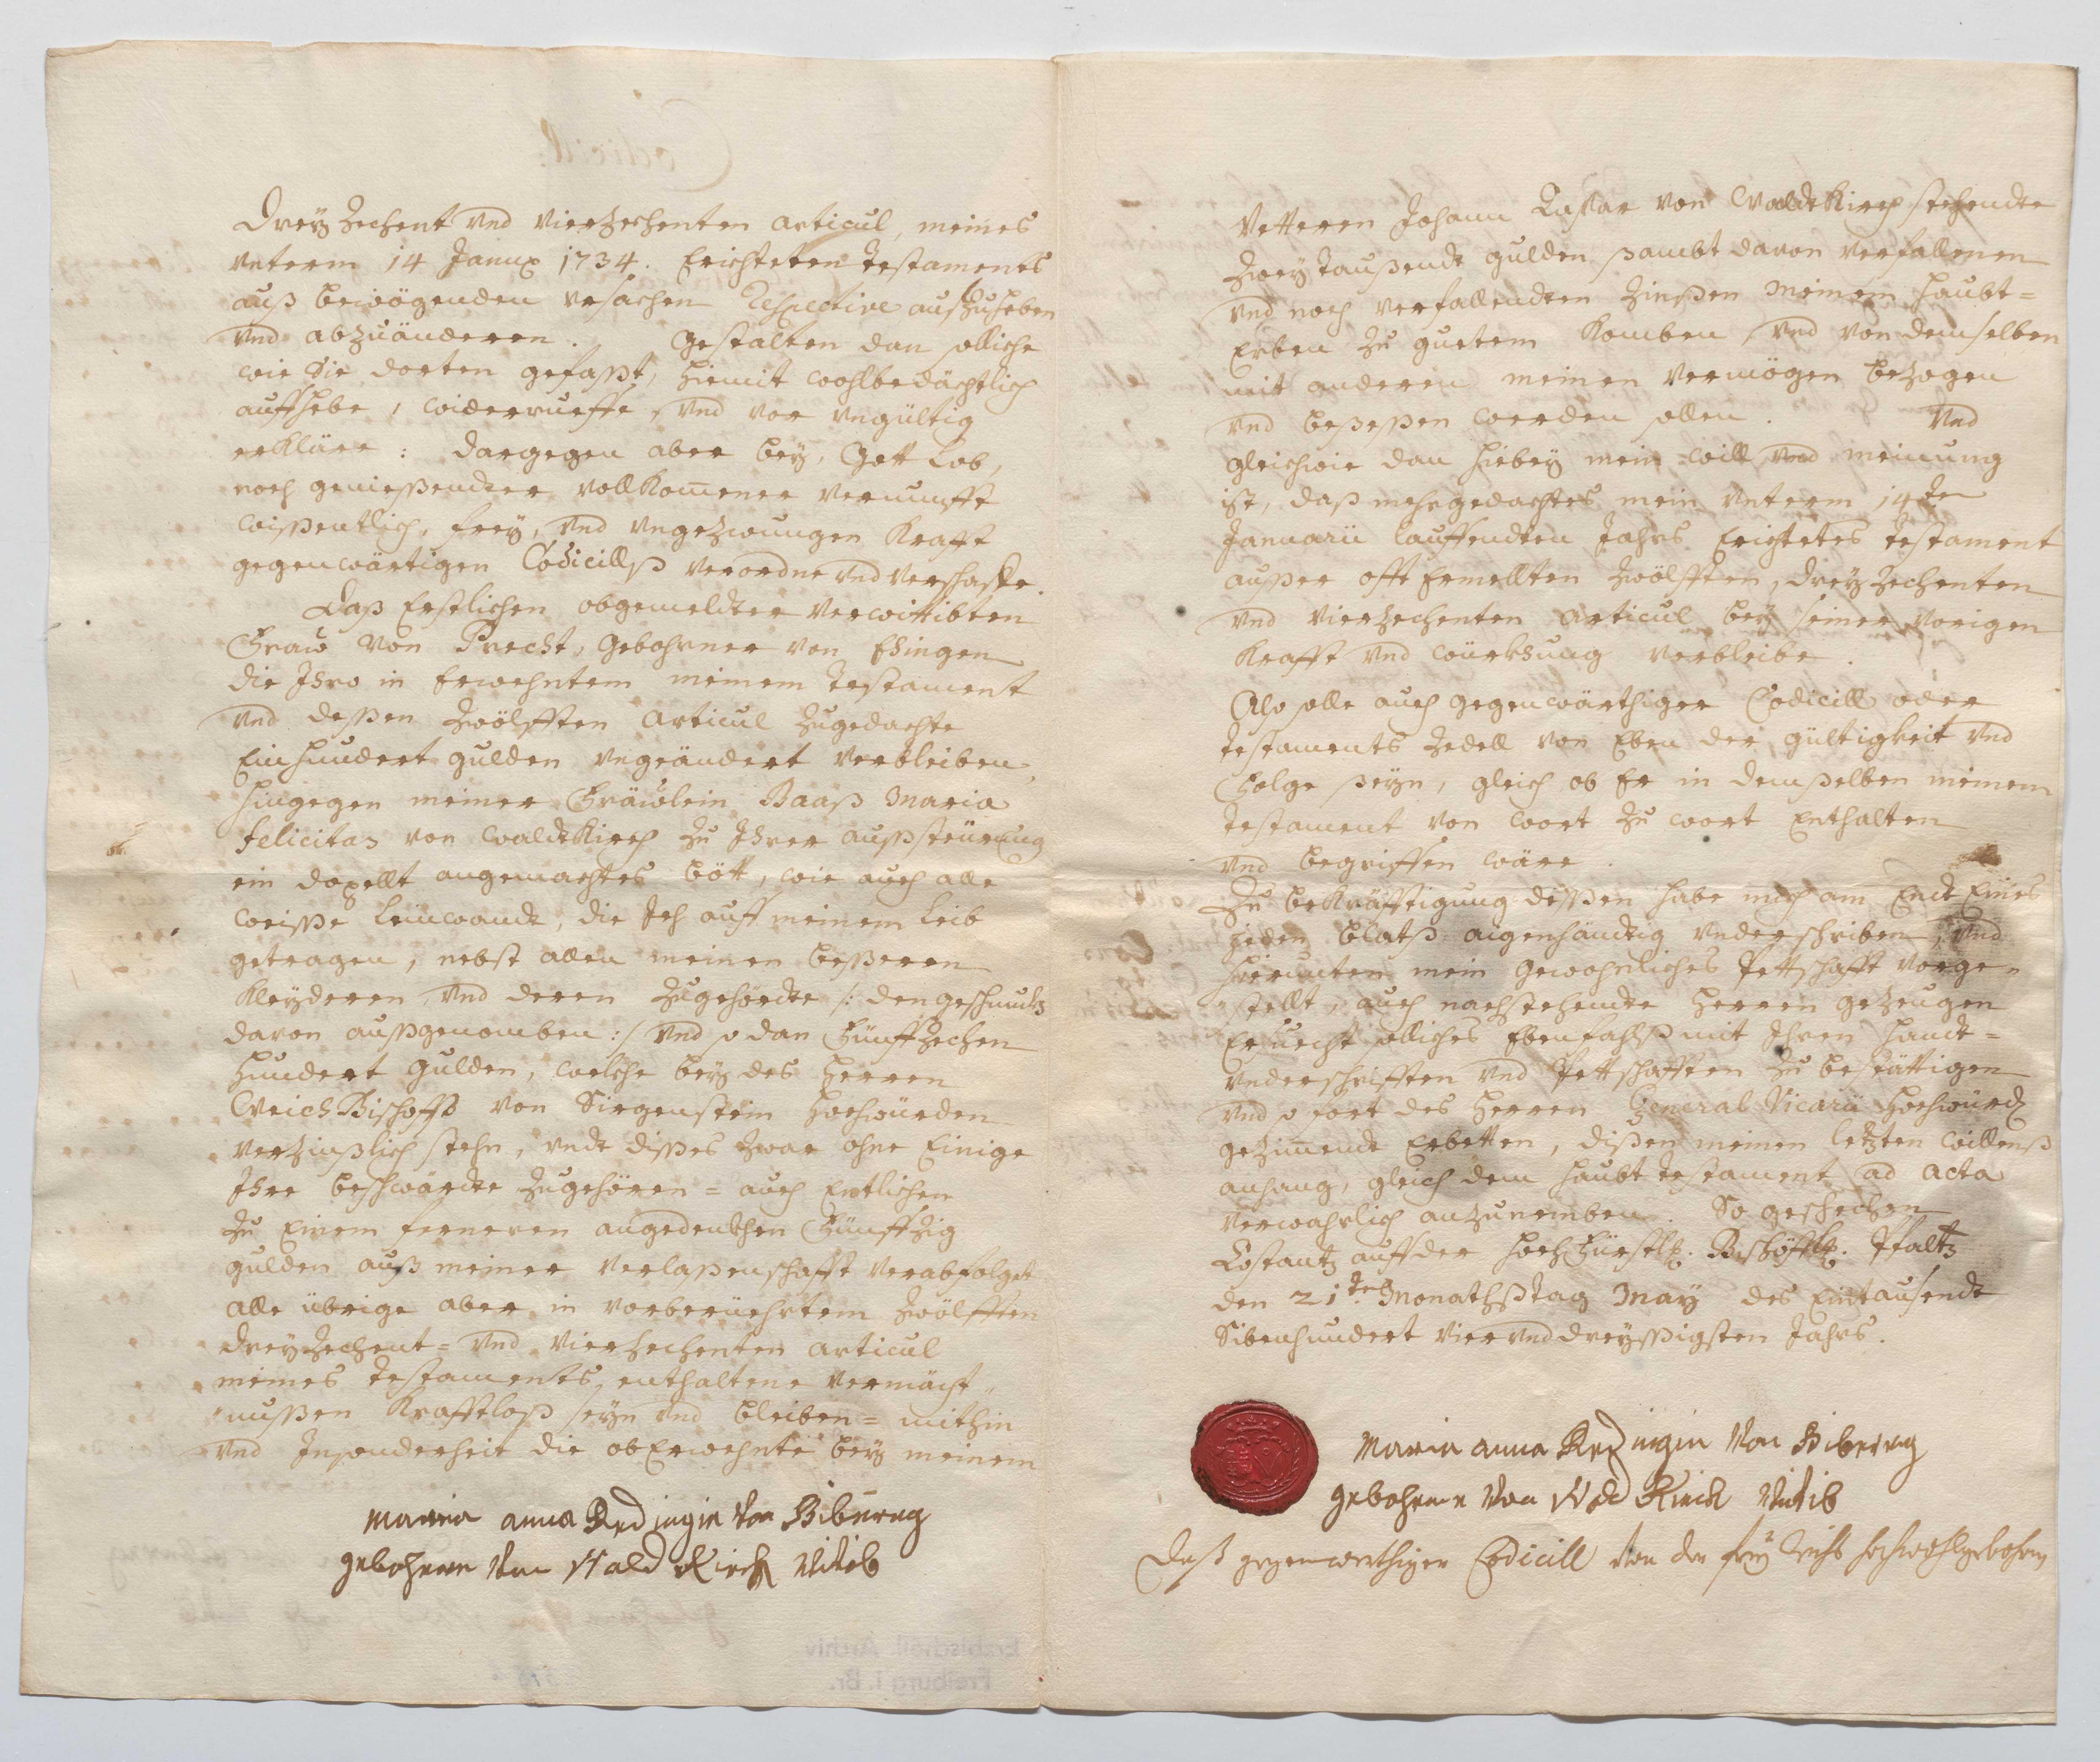 Dreyzechent vnd vierzechenten articul, meines
vnterm 14 Januar 1734. Erichteten Testaments
auß bewögenden vrsachen Respective auffzuheben
vnd abzuänderen. Gestalten dan solliche
wie Sie dorten gefaßt, hiemit wohlbedächtlich
auffhebe, widerrueffe, vnd vor vngültig
erkläre: dargegen aber bey, Gott Lob,
noch genießendter vollkomener vernunfft
wißentlich, frey, vnd vngezwungen Krafft
gegenwärtigen Codicillß verordne vnd verschaffe.
Daß Erstlichen obgemeldter verwittibten
Fraw von Precht, gebohrner von Ehingen
die Ihro in Erwehntem meinem Testament
vnd deßen zwölfften Articul zugedachte
Einhundert gulden vngeändert verbleiben,
hingegen meiner Fräwlein Baaß Maria
Felicitas von Waldtkirch zu Ihrer außsteürung
ein dopellt angemachtes bött, wie auch alle
weiße leinwandt, die Ich auff meinem Leib
getragen, nebst allen meinen beßeren
Kleyderen vnd deren zugehördte /: den geschmukh
davon außgenomben :/ vnd so dan Fünffzechen
hundert gulden, welche bey des Herren
Weich Bischoffs von Sirgenstein Hochwürden
verzinßlich stehn, vndt dißes zwar ohne Einige
Ihre beschwärdte zugehören = auch Endtlichen
zu Einem ferneren angedenkhen Fünffzig
gulden auß meiner Verlaßenschafft verabfolget
alle übrige aber in vorberüehrtem zwölfften
dreyzechent= vnd vierzechenten articul
meines Testaments enthaltene vermächt„
„nußen Krafftloß seyn vnd bleiben = mithin
vnd Insonderheit die obErwehnte bey meinem
Maria anna Redingin von Biberegg
gebohrene von Waldkirch Witib
Vetteren Johann Caspar von Waldtkirch stehendte
zwey taußendt gulden sambt davon verfallenen
vnd noch verfallendten Zinßen meinem Haubt=
Erben zu guetem Komben, vnd von demselben
mit anderen meinen vermögen bezogen
vnd beßeßen werden sollen. Vnd
gleichwie dan hiebey mein will vnd meinung
ist, daß mehrgedachtes mein vnterm 14ten
Januarii lauffendten Jahrs Erichtetes Testament
außer offt Ermellten zwölfften, dreyzechenten
vnd vierzechenten articul bey seiner vorigen
Krafft vnd würkhung verbleibe.
Also solle auch gegenwärthiger Codicill oder
Testaments Zedell von Eben der gültigkeit vnd
Folge seyn, gleich ob Er in demselben meinem
Testament von wort zu wort Enthalten
vnd begriffen wäre.
Zu bekräfftigung dißen habe mich am Endt Eines
jeden blatß aigenhändtig vnderschriben, vnd
hierunten mein gewohnliches Pettschafft vorge„
„stellt, auch nachstehendte Herren gezeugen
Ersuecht solliches Ebenfahlß mit Ihren Handt=
vnderschrifften vnd Pettschafften zu bestättigen
vnd so fort des Herren General Vicarii Hochwürd.
gezimendt Erbetten, dißen meinen letzten willenß
anhang, gleich dem Haubt testament ad acta
verwahrlich anzunemben. So geschechen
Costantz auff der Hochfürstl. Bischöffl. Pfaltz
den 21ten Monathßtag May des Eintausendt
Sibenhundert vierunddreyßigsten Jahrs.
Maria anna Redingin von Biberegg
gebohrene von Wald Kirch Witib
Daß gegenwerthiger Codicill von der frey reichs hochwohlgebohrnen